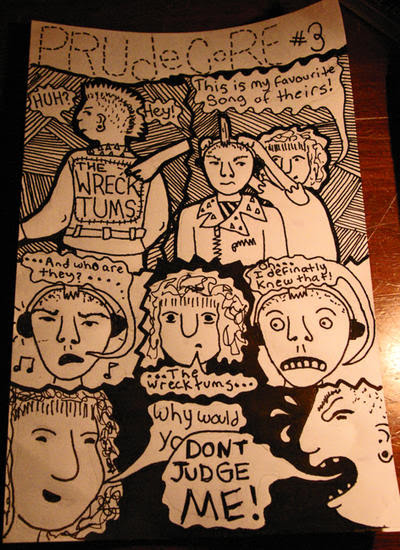 PRUdeCoRE #3
HUH?
Hey!
THE
WRECK
TUMS
This is my favourite
Song of theirs!
...And who are
they?...
...The
Wrecktums...
Oh...
I definatly
knew that!
Why would
yo
DONT
JUDGE
ME!